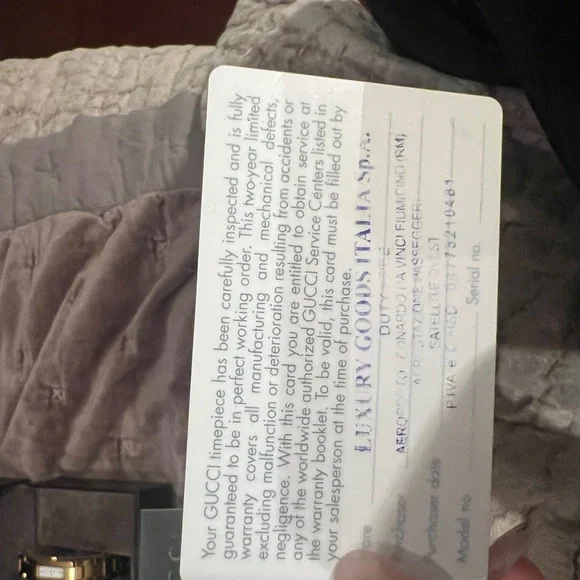 Your GUCCI timepiece has been carefully inspected and is fully
guaranteed to be in perfect working order. This two-year limited
warranty covers all manufacturing and mechanical defects,
excluding malfunction or deterioration resulting from accidents or
negligence. With this card you are entitled to obtain service at
any of the worldwide authorized GUCCI Service Centers listed in
the warranty booklet. To be valid, this card must be filled out by
your salesperson at the time of purchase.
LUXURY GOODS ITALIA S.p.A.
DUTY
AEROPORTO LEONARDO DA VINCI FIUMICINO (RM)
PASSEGGERI
SATELLITE
P.IVA e
Purchase date
Model no.
Serial no.